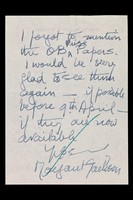 I forgot to mention
the O.B. Press Papers.
I would be very
glad to see them
again — if possible
before 9th April —
if they are now
available.
Yrs
Margaret Jackson